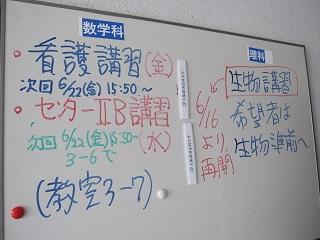 数学科
・看護講習(金)
次回 6/22(金)15:50~
・センターⅡB講習
次回 6/22(金)15:50~(水)
3-6で
(教室3-7)
理科
生物講習
希望者は
生物準前へ
6/16より再開